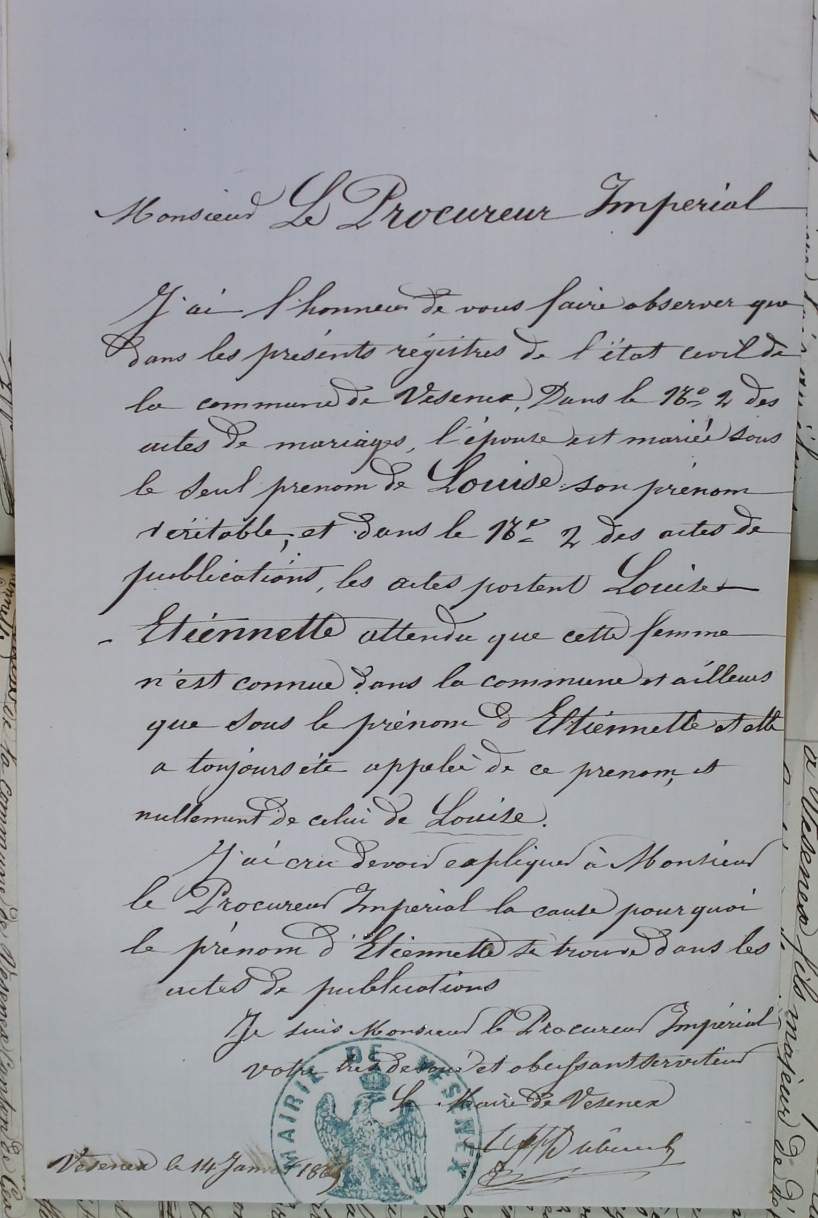 Monsieur Le Procureur Imperial
J'ai l'honneur de vous faire observer que
dans les présents régistres de l'état civil de
la commune de Vesenex, Dans le No 2 des
actes de mariages, l'épouse est mariée sous
le seul prenom de Louise son prénom
véritable, et dans le No 2 des actes de
publications, les actes portent Louise
Etiénnette attendu que cette femme
n'est connue dans la commune et ailleurs
que sous le prénom d'Ettiénnette et elle
a toujours été appelée de ce prenom, et
nullement de celui de Louise.
J'ai cru devoir expliquer à Monsieur
le Procureur Imperial la cause pourquoi
le prénom d'Etiennette se trouve dans les
actes de publications
Je suis Monsieur le Procureur Impérial
votre très devoué et obeissant serviteur
Le Maire de Vesenex
MAIRIE DE VESENEX
Vesenex le 14 Janvier